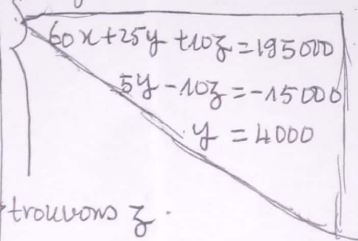 60x+25y+10z=195000
5y-10z=-15000
y=4000
trouvons z.